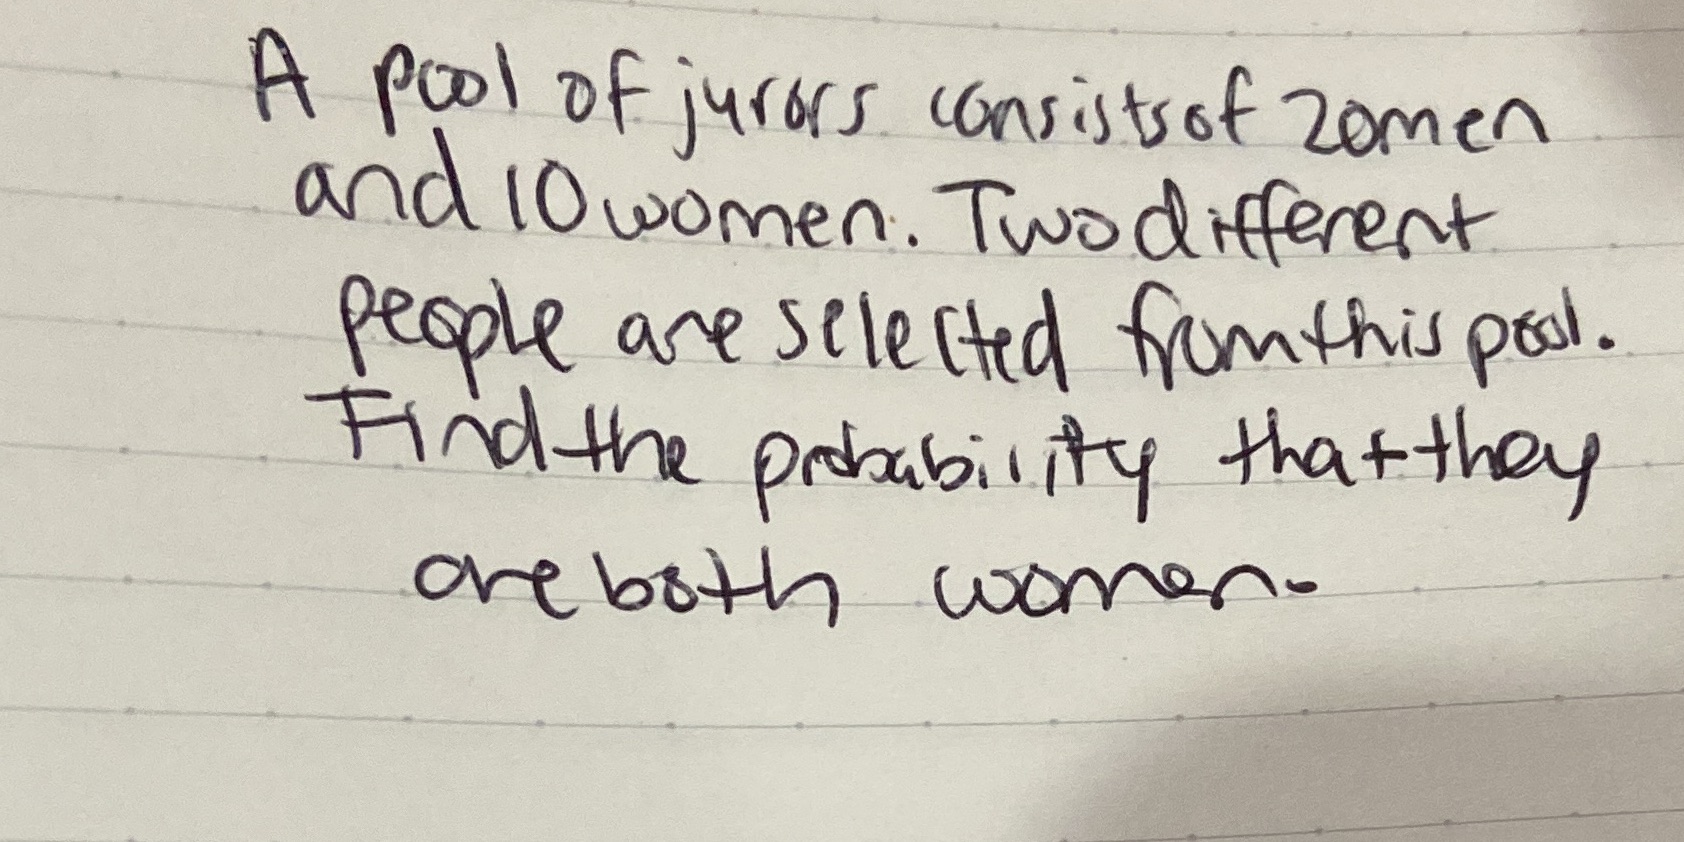 A pool of jurors consists of 20 men
and 10 women. Two different
people are selected from this pool.
Find the probability that they
are both women.